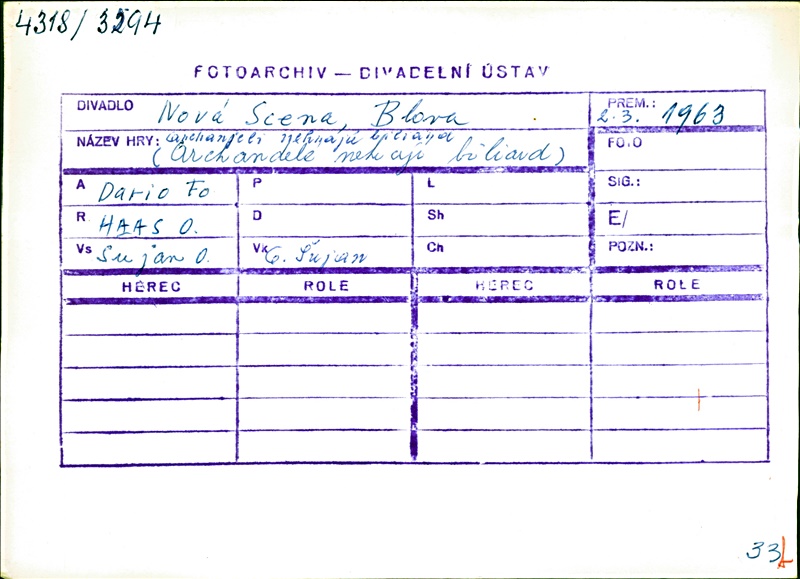 4318/3294
FOTOARCHIV — DIVADELNÍ ÚSTAV
DIVADLO Nová Scena, Blova
PREM.: 2.3. 1963
NÁZEV HRY: archanjeli nehrajú
(Archandělé nehrají biliard)
FOTO
A Dario Fo
P
L
SIG.:
R HAAS O.
D
Sh
E/
Vs Šujan O.
Vk C. Šujan
Ch
POZN.:
HEREC ROLE HEREC ROLE
33